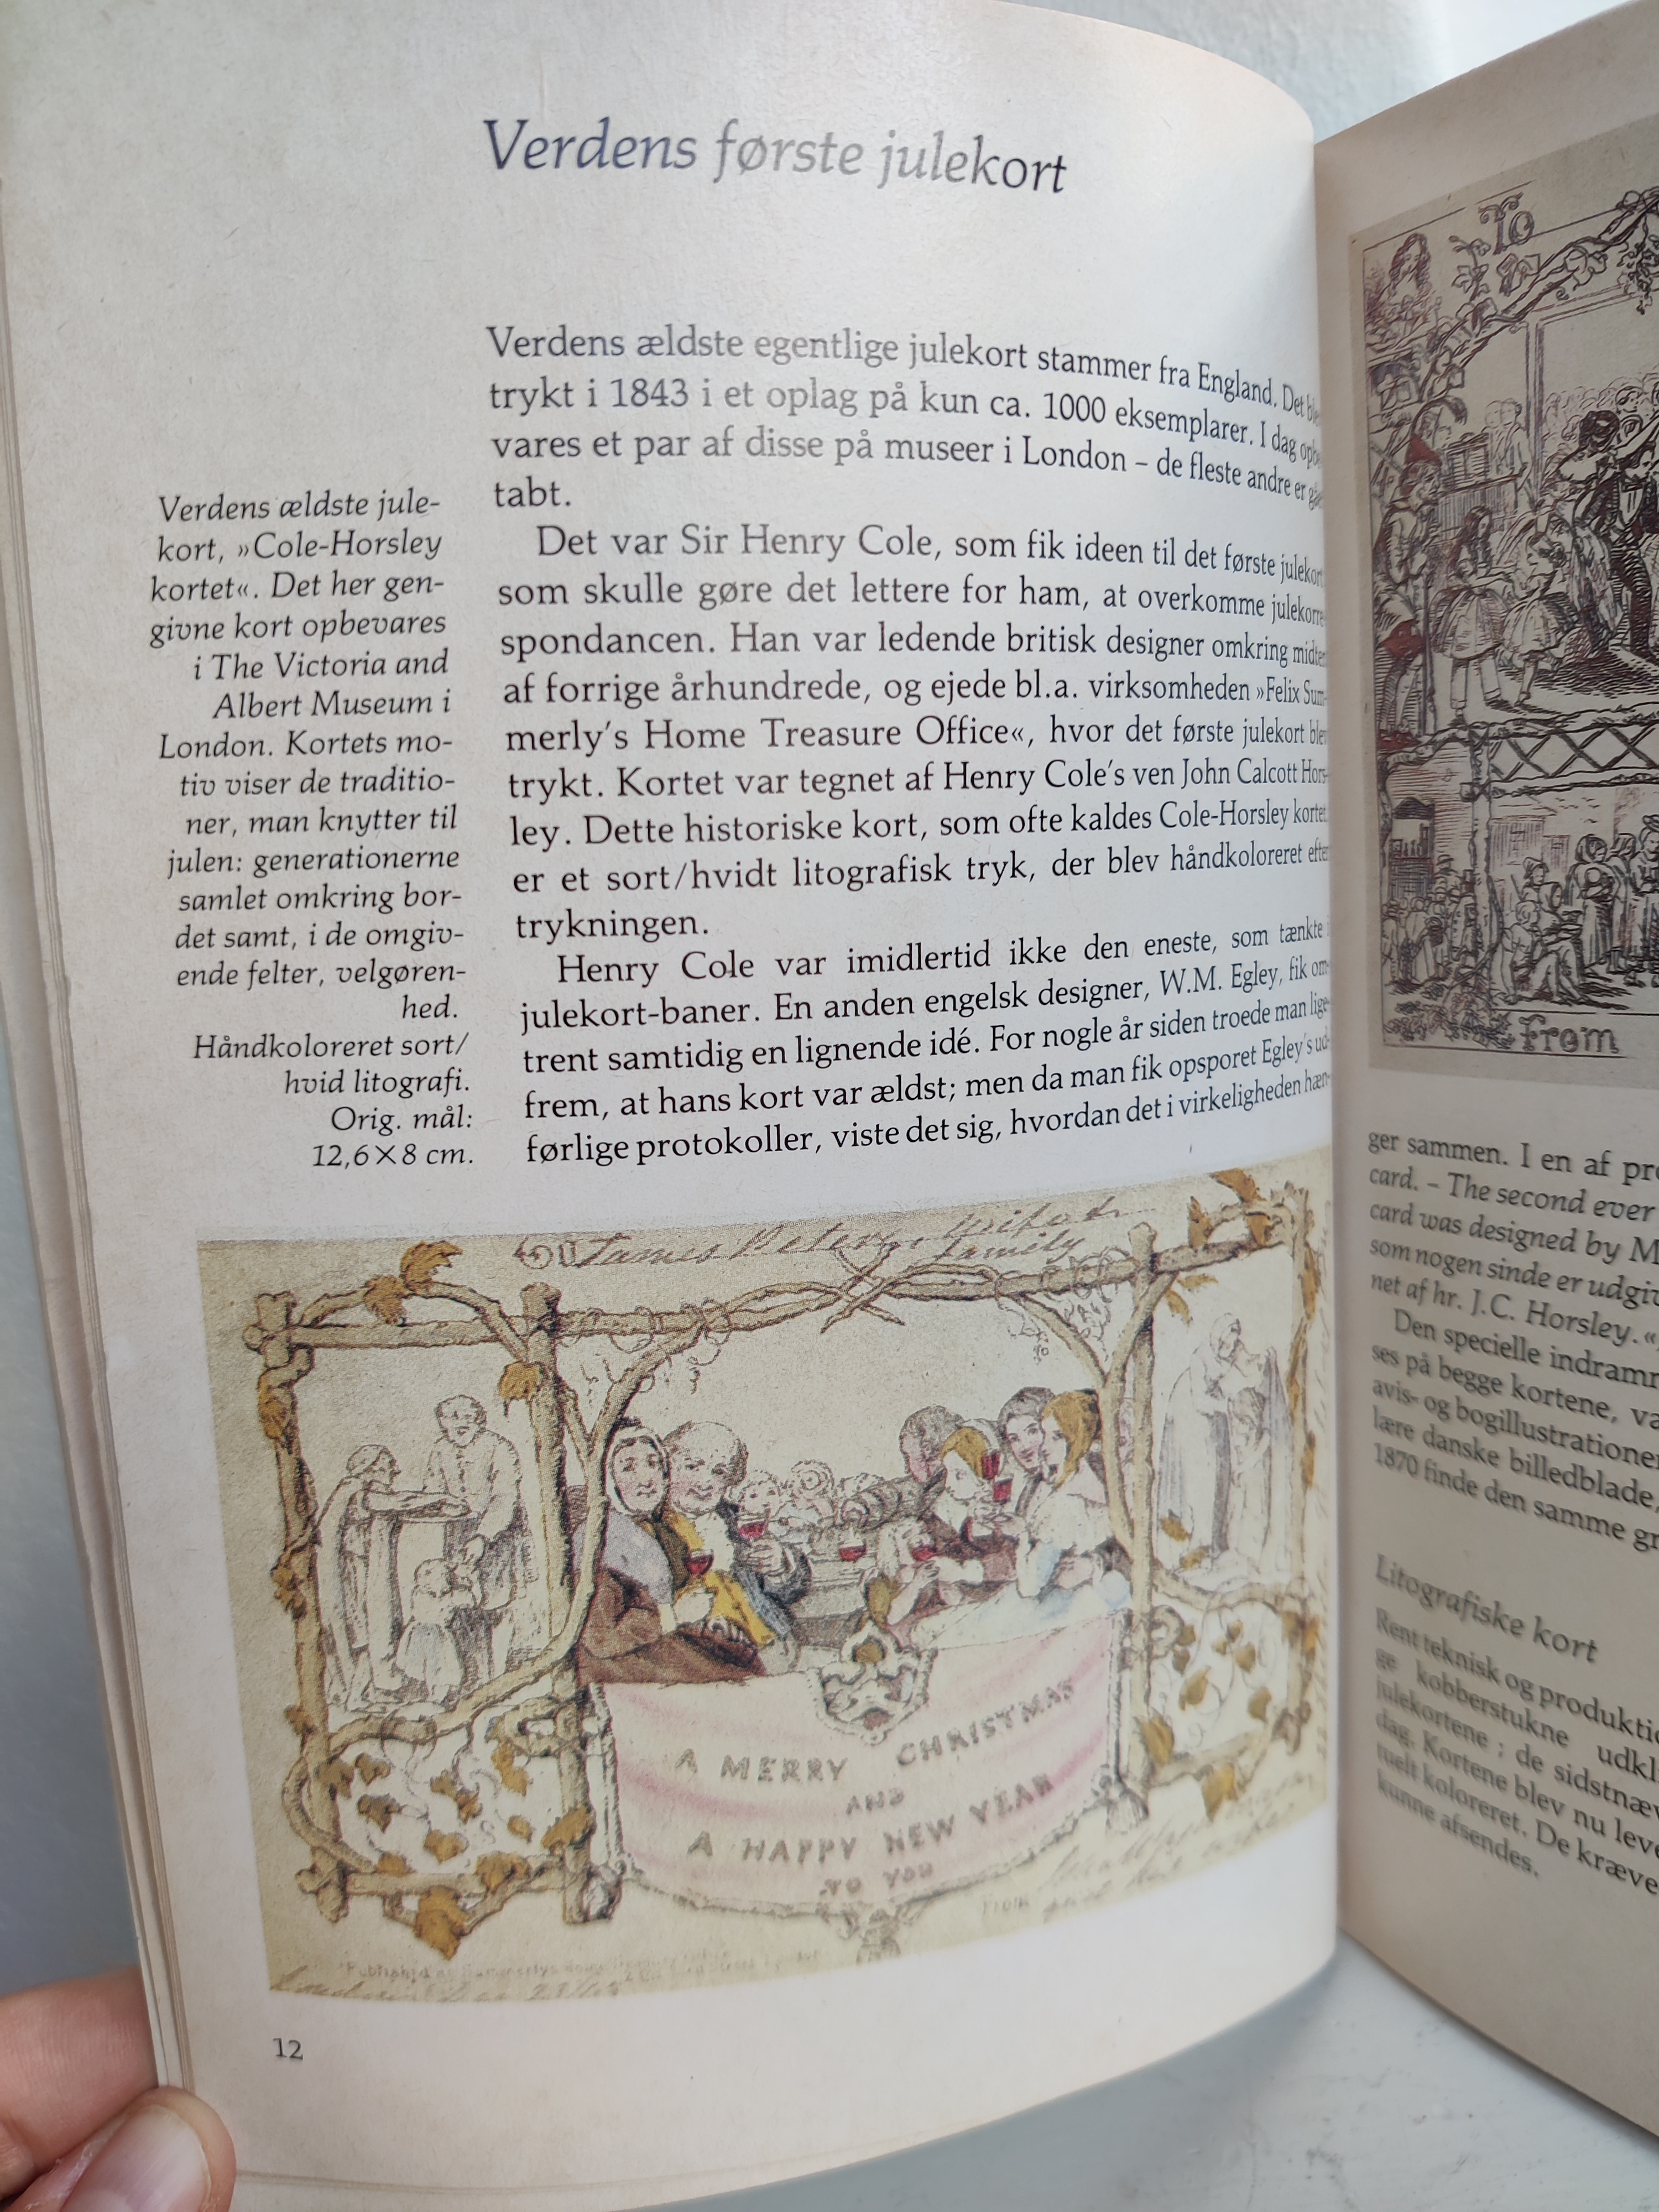 Verdens første julekort
Verdens ældste egentlige julekort stammer fra England. Det
trykt i 1843 i et oplag på kun ca. 1000 eksemplarer. I dag
vares et par af disse på museer i London – de fleste andre er
tabt.
Det var Sir Henry Cole, som fik ideen til det første julekort
som skulle gøre det lettere for ham, at overkomme julekorre-
spondancen. Han var ledende britisk designer omkring midten
af forrige århundrede, og ejede bl.a. virksomheden »Felix Sum-
merly's Home Treasure Office«, hvor det første julekort blev
trykt. Kortet var tegnet af Henry Cole's ven John Calcott Hors-
ley. Dette historiske kort, som ofte kaldes Cole-Horsley kortet
er et sort/hvidt litografisk tryk, der blev håndkoloreret efter
trykningen.
Henry Cole var imidlertid ikke den eneste, som tænkte i
julekort-baner. En anden engelsk designer, W.M. Egley, fik om-
trent samtidig en lignende idé. For nogle år siden troede man lige-
frem, at hans kort var ældst; men da man fik opsporet Egley's ud-
førlige protokoller, viste det sig, hvordan det i virkeligheden hæn-
Verdens ældste jule-
kort, »Cole-Horsley
kortet«. Det her gen-
givne kort opbevares
i The Victoria and
Albert Museum i
London. Kortets mo-
tiv viser de traditio-
ner, man knytter til
julen: generationerne
samlet omkring bor-
det samt, i de omgiv-
ende felter, velgøren-
hed.
Håndkoloreret sort/
hvid litografi.
Orig. mål:
12,6×8 cm.
A MERRY CHRISTMAS
AND
A HAPPY NEW YEAR
TO YOU
From
12
To
From
ger sammen. I en af
card. – The second ever
card was designed by
som nogen sinde er
net af hr. J.C. Horsley.«
Den specielle
ses på begge kortene,
avis- og bogillustrationer
lære danske billedblade,
1870 finde den samme
Litografiske kort
Rent teknisk og
ge kobberstukne
julekortene; de
dag. Kortene blev nu
tuelt koloreret. De
kunne afsendes.